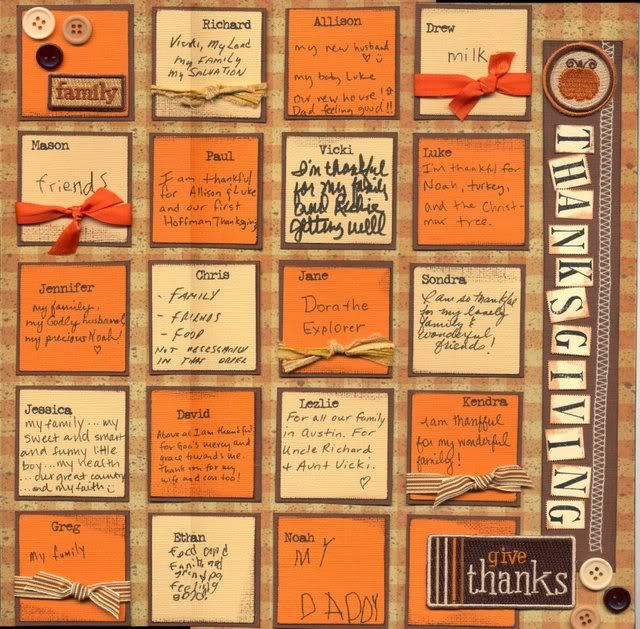 family
Richard
Vicki, My Land
My FAMILY
My SALVATION
Allison
my new husband
my baby Luke
Our new house!
Dad feeling good!!
Drew
milk
Mason
friends
Paul
I am thankful
for Allison & Luke
and our first
Hoffman Thanksgiving
Vicki
I'm thankful
for my family
and Richie
getting well
Luke
I'm thankful for
Noah, turkey,
and the Christ-
mas tree.
Jennifer
my family,
my Godly husband,
my precious Noah!
Chris
- FAMILY
- FRIENDS
- FOOD
NOT NECESSARILY
IN THAT ORDER
Jane
Dora the
Explorer
Sondra
I am so thankful
for my lovely
family &
wonderful
friends!
Jessica
my family... my
sweet and smart
and funny little
boy... my health
... our great country
... and my faith
David
Above all I am thankful
for God's mercy and
grace towards me.
Thank you for my
wife and son too!
Lezlie
For all our family
in Austin. For
Uncle Richard
& Aunt Vicki.
Kendra
I am thankful
for my wonderful
family!
Greg
My family
Ethan
food and
family and
grandpa
feeling
good.
Noah
MY
DADDY
THANKSGIVING
give
thanks